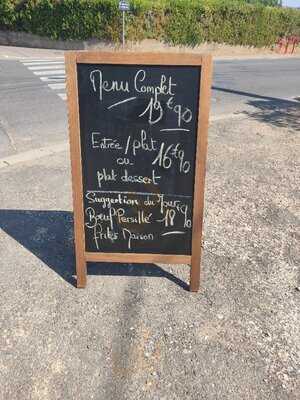 Menu Complet
19€90
Entrée/plat
ou 16€90
plat dessert
Suggestion du Jour
Bœuf Persillé 18€90
frites Maison